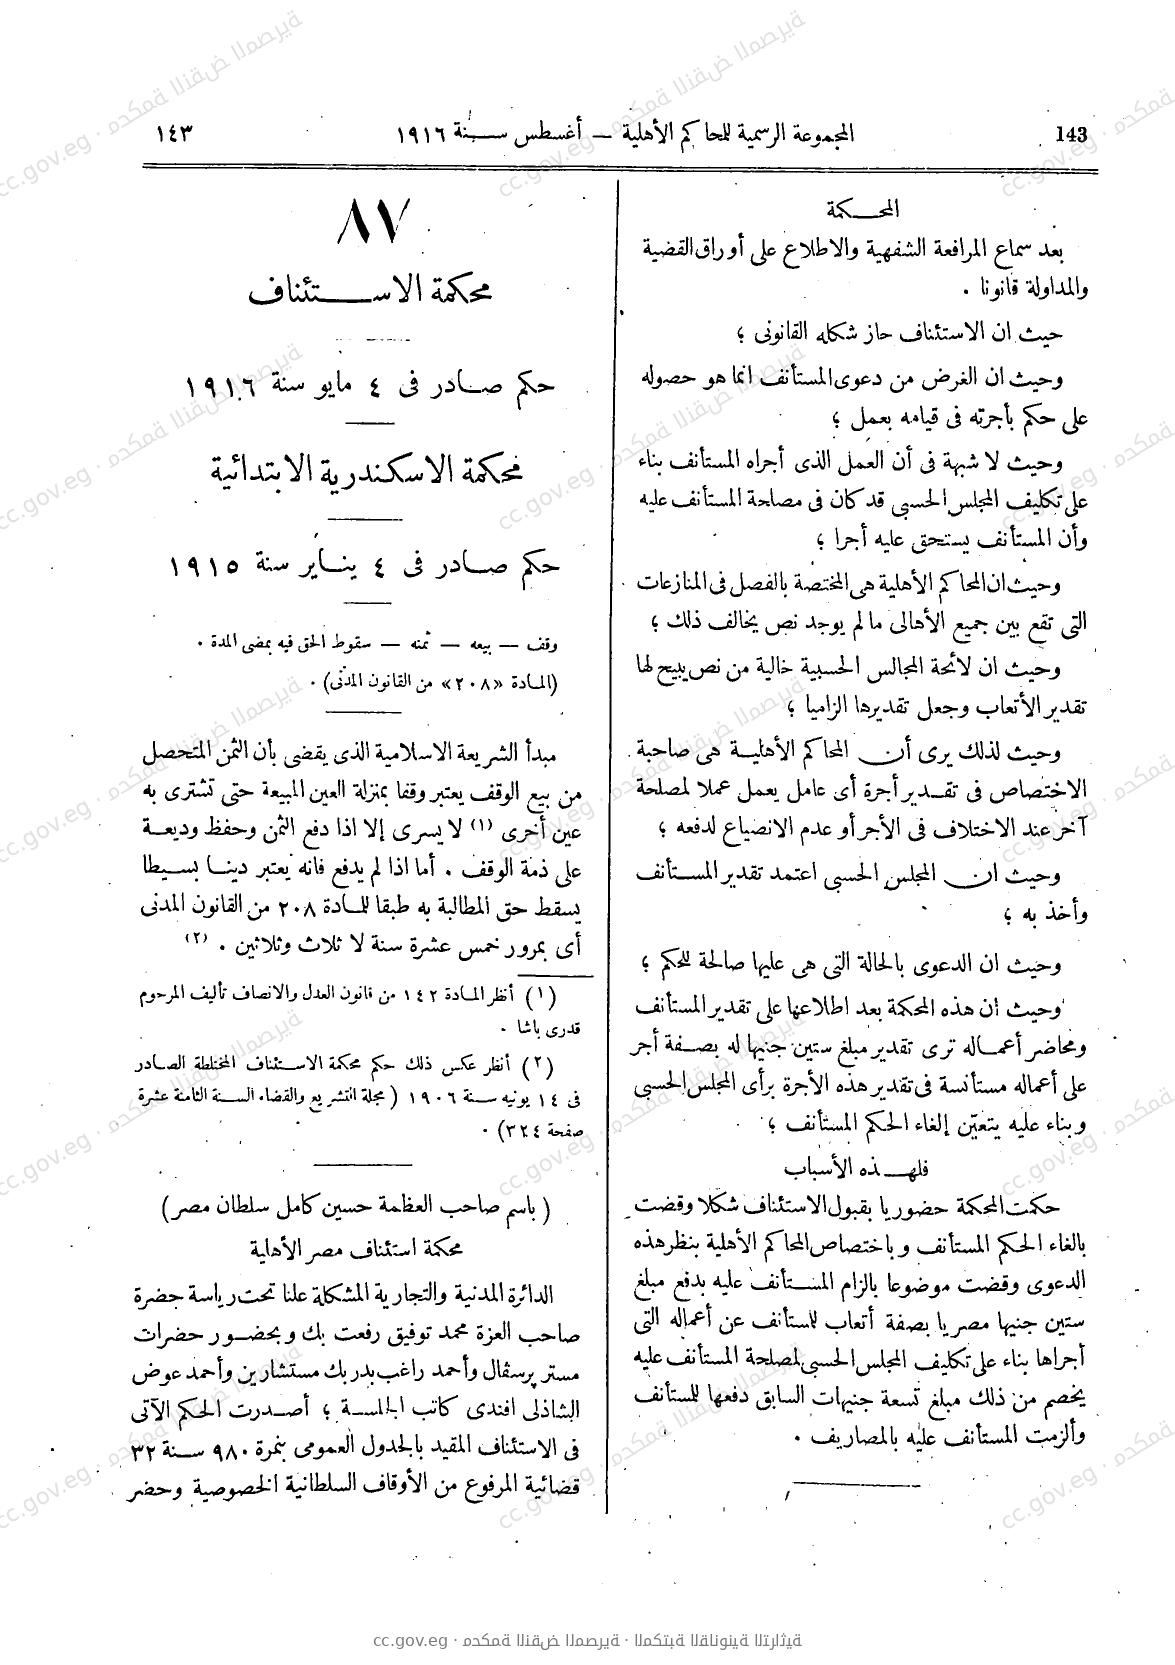 143
المجموعة الرسمية للمحاكم الأهلية — أغسطس سنة ١٩١٦
١٤٣
المحكمة
بعد سماع المرافعة الشفهية والاطلاع على أوراق القضية
والمداولة قانونا .
حيث ان الاستئناف حاز شكله القانونى ؛
وحيث ان الغرض من دعوى المستأنف انما هو حصوله
على حكم بأجرته فى قيامه بعمل ؛
وحيث لا شبهة فى أن العمل الذى أجراه المستأنف بناء
على تكليف المجلس الحسبى قد كان فى مصلحة المستأنف عليه
وأن المستأنف يستحق عليه أجرا ؛
وحيث ان المحاكم الأهلية هى المختصة بالفصل فى المنازعات
التى تقع بين جميع الأهالى ما لم يوجد نص يخالف ذلك ؛
وحيث ان لائحة المجالس الحسبية خالية من نص يبيح لها
تقدير الأتعاب وجعل تقديرها الزاميا ؛
وحيث لذلك يرى أن المحاكم الأهلية هى صاحبة
الاختصاص فى تقدير أجرة أى عامل يعمل عملا لمصلحة
آخر عند الاختلاف فى الأجر أو عدم الانصياع لدفعه ؛
وحيث ان المجلس الحسبى اعتمد تقدير المستأنف
وأخذ به ؛
وحيث ان الدعوى بالحالة التى هى عليها صالحة للحكم ؛
وحيث ان هذه المحكمة بعد اطلاعها على تقدير المستأنف
ومحاضر أعماله ترى تقدير مبلغ ستين جنيها له بصفة أجر
على أعماله مستأنسة فى تقدير هذه الأجرة برأى المجلس الحسبى
وبناء عليه يتعيّن إلغاء الحكم المستأنف ؛
فلهذه الأسباب
حكمت المحكمة حضوريا بقبول الاستئناف شكلا وقضت
بالغاء الحكم المستأنف وباختصاص المحاكم الأهلية بنظر هذه
الدعوى وقضت موضوعا بالزام المستأنف عليه بدفع مبلغ
ستين جنيها مصريا بصفة أتعاب للمستأنف عن أعماله التى
أجراها بناء على تكليف المجلس الحسبى لمصلحة المستأنف عليه
يخصم من ذلك مبلغ تسعة جنيهات السابق دفعها للمستأنف
وألزمت المستأنف عليه بالمصاريف .
٨٧
محكمة الاستئناف
حكم صادر فى ٤ مايو سنة ١٩١٦
محكمة الاسكندرية الابتدائية
حكم صادر فى ٤ يناير سنة ١٩١٥
وقف — بيعه — ثمنه — سقوط الحق فيه بمضى المدة .
(المادة «٢٠٨» من القانون المدنى) .
مبدأ الشريعة الاسلامية الذى يقضى بأن الثمن المتحصل
من بيع الوقف يعتبر وقفا بمنزلة العين المبيعة حتى تشترى به
عين أخرى (١) لا يسرى إلا اذا دفع الثمن وحفظ وديعة
على ذمة الوقف . أما اذا لم يدفع فانه يعتبر دينا بسيطا
يسقط حق المطالبة به طبقا للمادة ٢٠٨ من القانون المدنى
أى بمرور خمس عشرة سنة لا ثلاث وثلاثين . (٢)
(١) أنظر المادة ١٤٢ من قانون العدل والانصاف تأليف المرحوم
قدرى باشا .
(٢) أنظر عكس ذلك حكم محكمة الاستئناف المختلطة الصادر
فى ١٤ يونيه سنة ١٩٠٦ (مجلة التشريع والقضاء السنة الثامنة عشرة
صفحة ٣٢٤) .
(باسم صاحب العظمة حسين كامل سلطان مصر)
محكمة استئناف مصر الأهلية
الدائرة المدنية والتجارية المشكلة علنا تحت رياسة حضرة
صاحب العزة محمد توفيق رفعت بك وبحضور حضرات
مستر پرسڤال وأحمد راغب بدر بك مستشارين وأحمد عوض
الشاذلى افندى كاتب الجلسة ؛ أصدرت الحكم الآتى
فى الاستئناف المقيد بالجدول العمومى بنمرة ٩٨٠ سنة ٣٢
قضائية المرفوع من الأوقاف السلطانية الخصوصية وحضر
cc.gov.eg · محكمة النقض المصرية · المكتبة القانونية التراثية